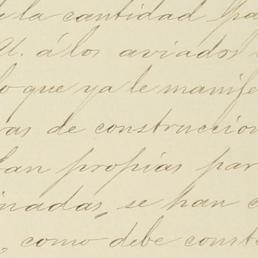 de la cantidad pa
U. á los aviados
lo que ya le manife
ras de construccion
ban propias par
inadas, se han c
, como debe const